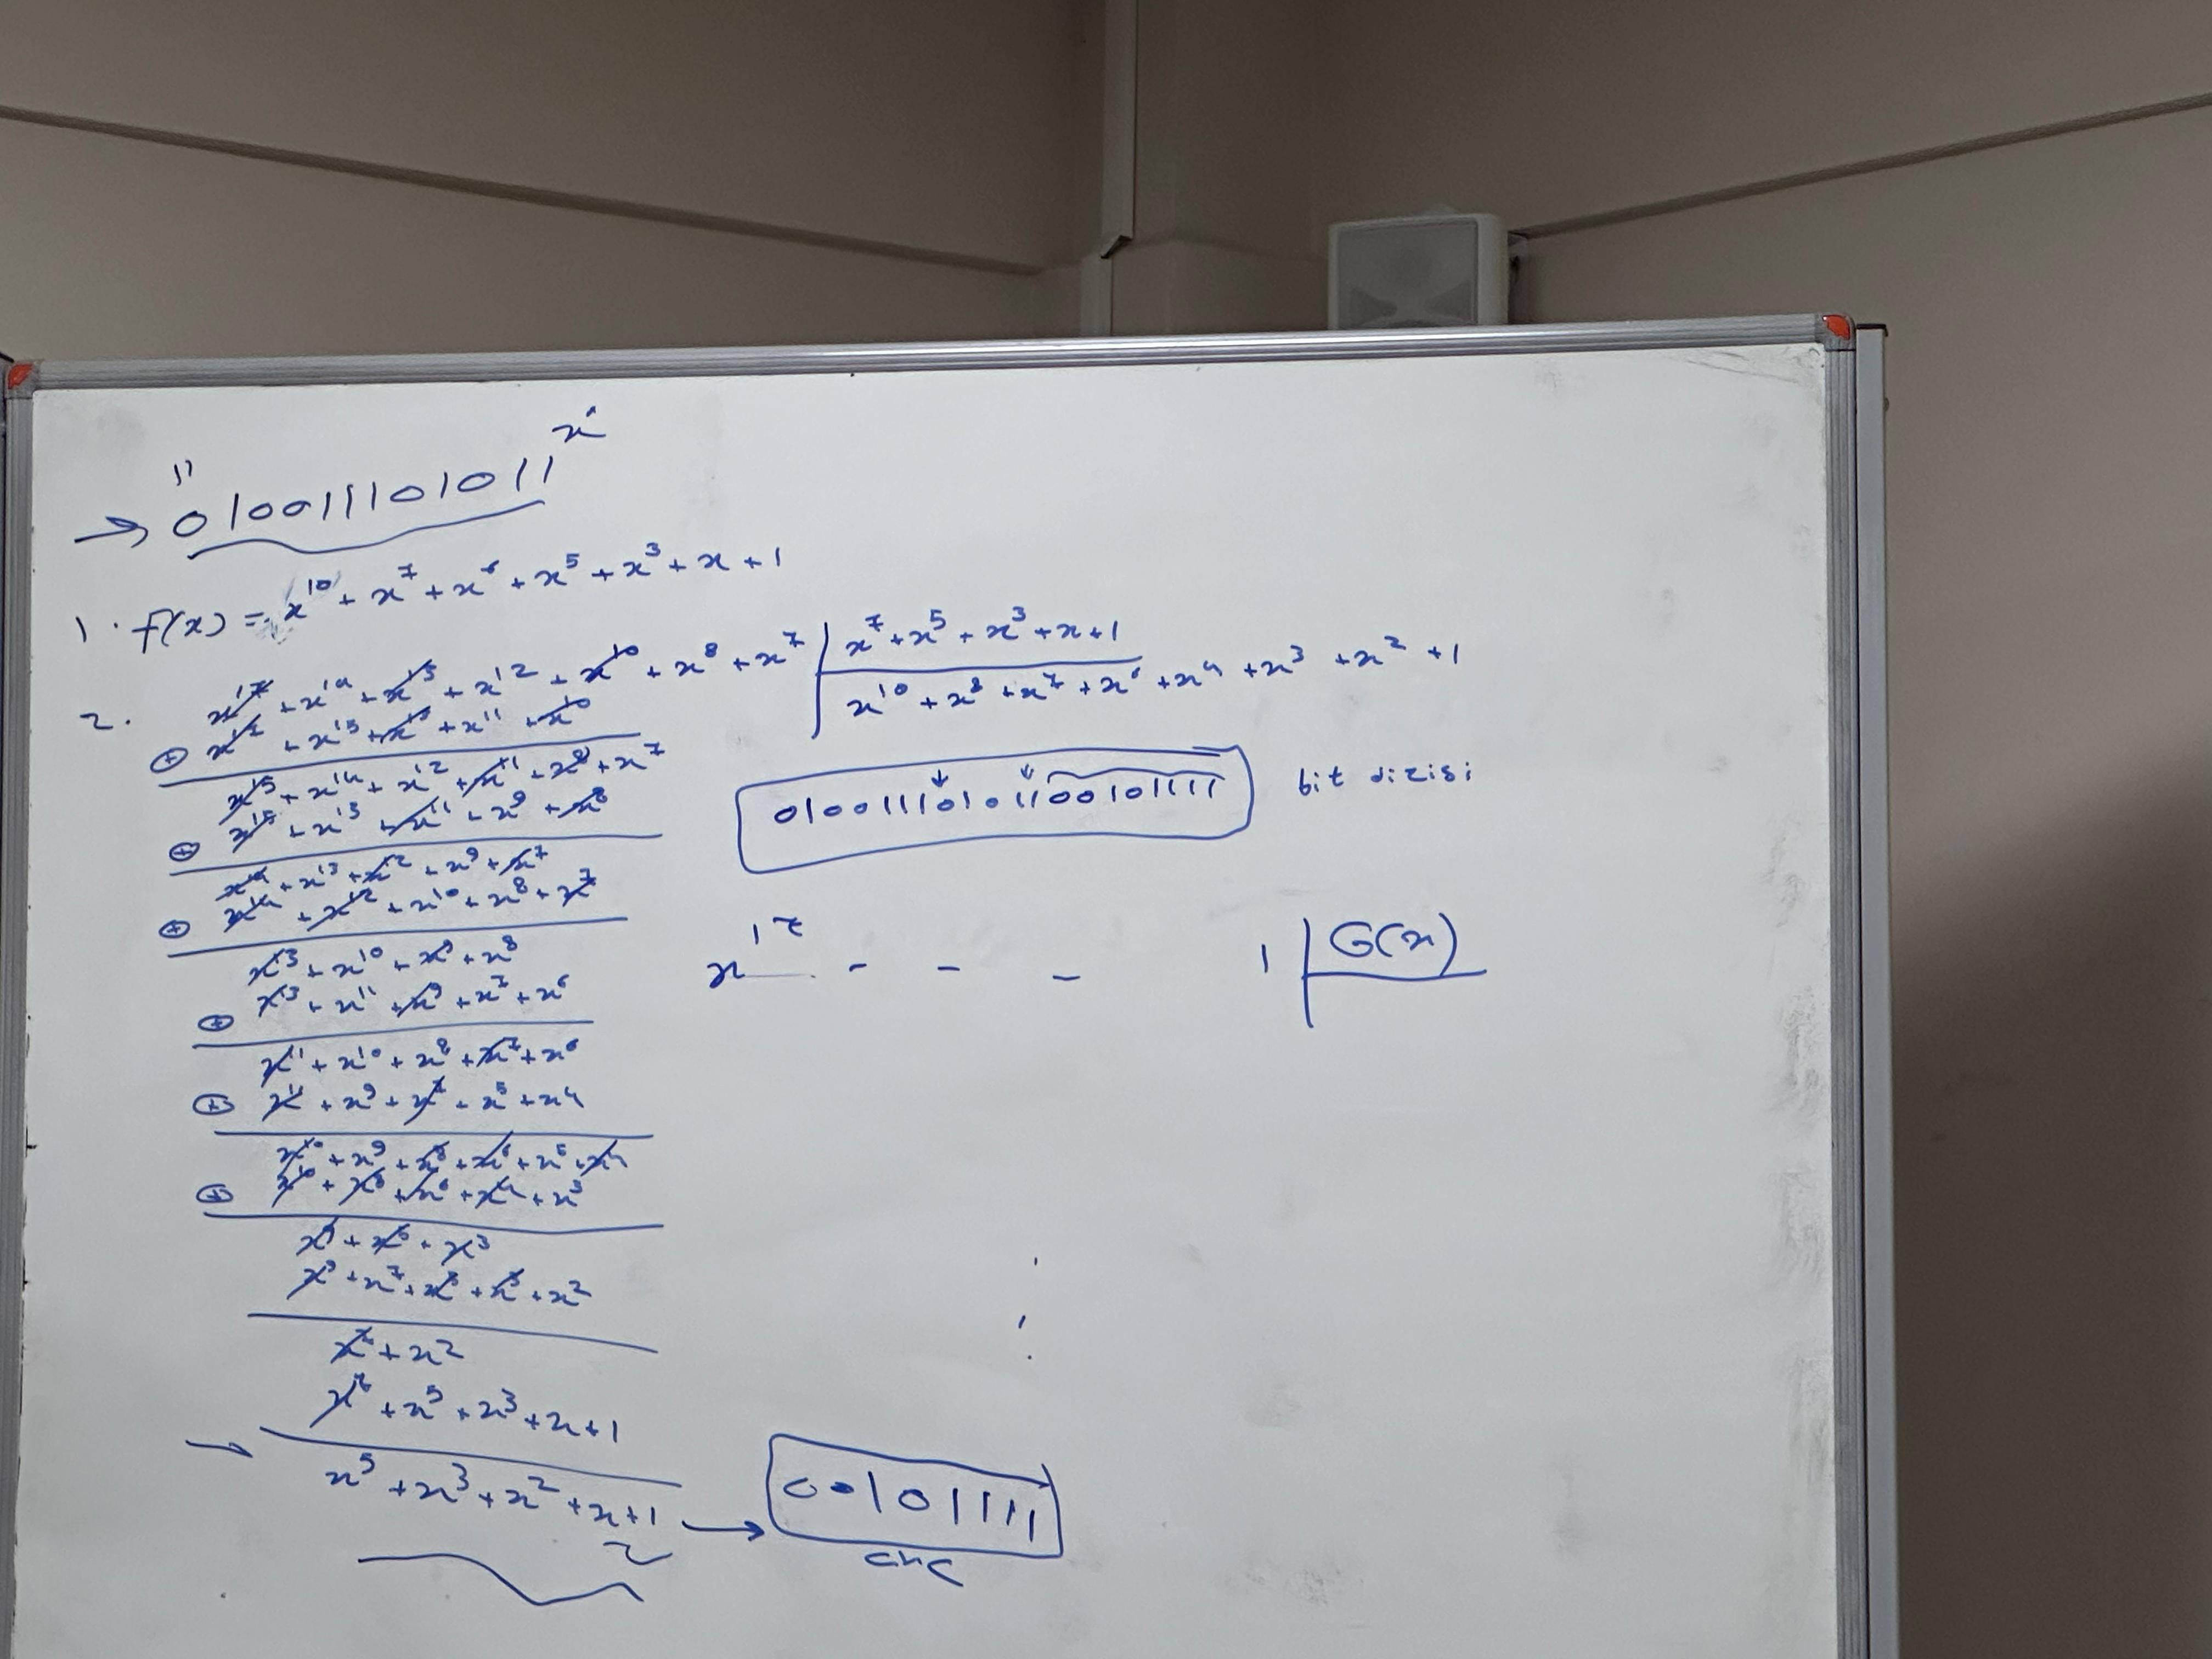 11 x⁰
→ 010011101011
1. f(x) = x¹⁰ + x⁷ + x⁶ + x⁵ + x³ + x + 1
2. x¹⁷ + x¹⁴ + x¹³ + x¹² + x¹⁰ + x⁸ + x⁷ | x⁷ + x⁵ + x³ + x + 1
x¹⁰ + x⁸ + x⁷ + x⁶ + x⁴ + x³ + x² + 1
⊕ x¹⁷ + x¹⁵ + x¹³ + x¹¹ + x¹⁰
x¹⁵ + x¹⁴ + x¹² + x¹¹ + x⁸ + x⁷
⊕ x¹⁵ + x¹³ + x¹¹ + x⁹ + x⁸
x¹⁴ + x¹³ + x¹² + x⁹ + x⁷
⊕ x¹⁴ + x¹² + x¹⁰ + x⁸ + x⁷
x¹³ + x¹⁰ + x⁹ + x⁸
⊕ x¹³ + x¹¹ + x⁹ + x⁷ + x⁶
x¹¹ + x¹⁰ + x⁸ + x⁷ + x⁶
⊕ x¹¹ + x⁹ + x⁷ + x⁵ + x⁴
x¹⁰ + x⁹ + x⁸ + x⁶ + x⁵ + x⁴
⊕ x¹⁰ + x⁸ + x⁶ + x⁴ + x³
x⁹ + x⁵ + x³
x⁹ + x⁷ + x⁵ + x³ + x²
x⁷ + x²
x⁷ + x⁵ + x³ + x + 1
→ x⁵ + x³ + x² + x + 1 → 00101111
CRC
01001110101100101111 bit dizisi
x¹⁷ - - - 1 | G(x)